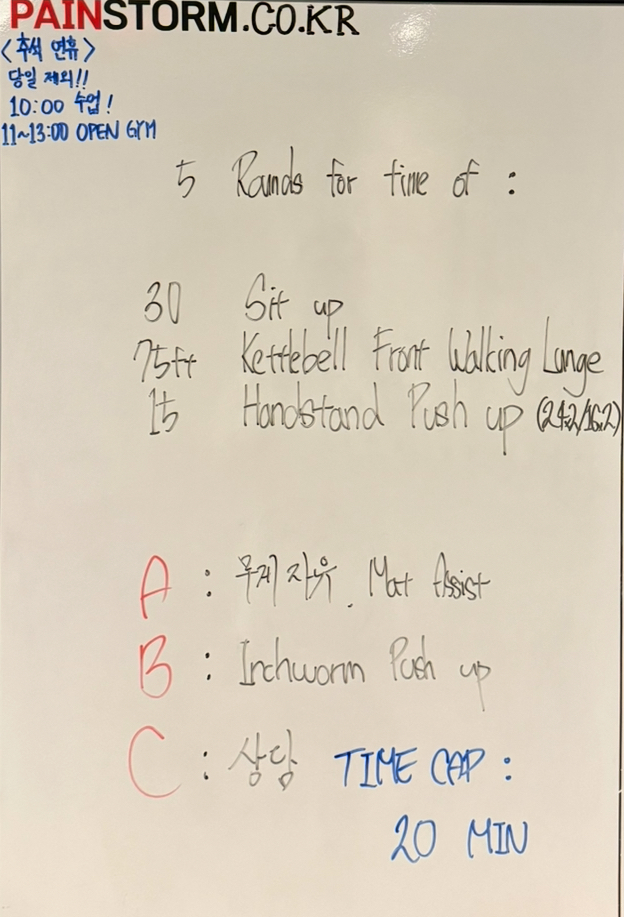 PAINSTORM.CO.KR
<추석 연휴>
당일 제외!!
10:00 수업!
11~13:00 OPEN GYM
5 Rounds for time of :
30 Sit up
75ft Kettlebell Front Walking Lunge
15 Handstand Push up (24.2/16.2)
A : 무게 자유. Mat Assist
B : Inchworm Push up
C : 상담
TIME CAP :
20 MIN